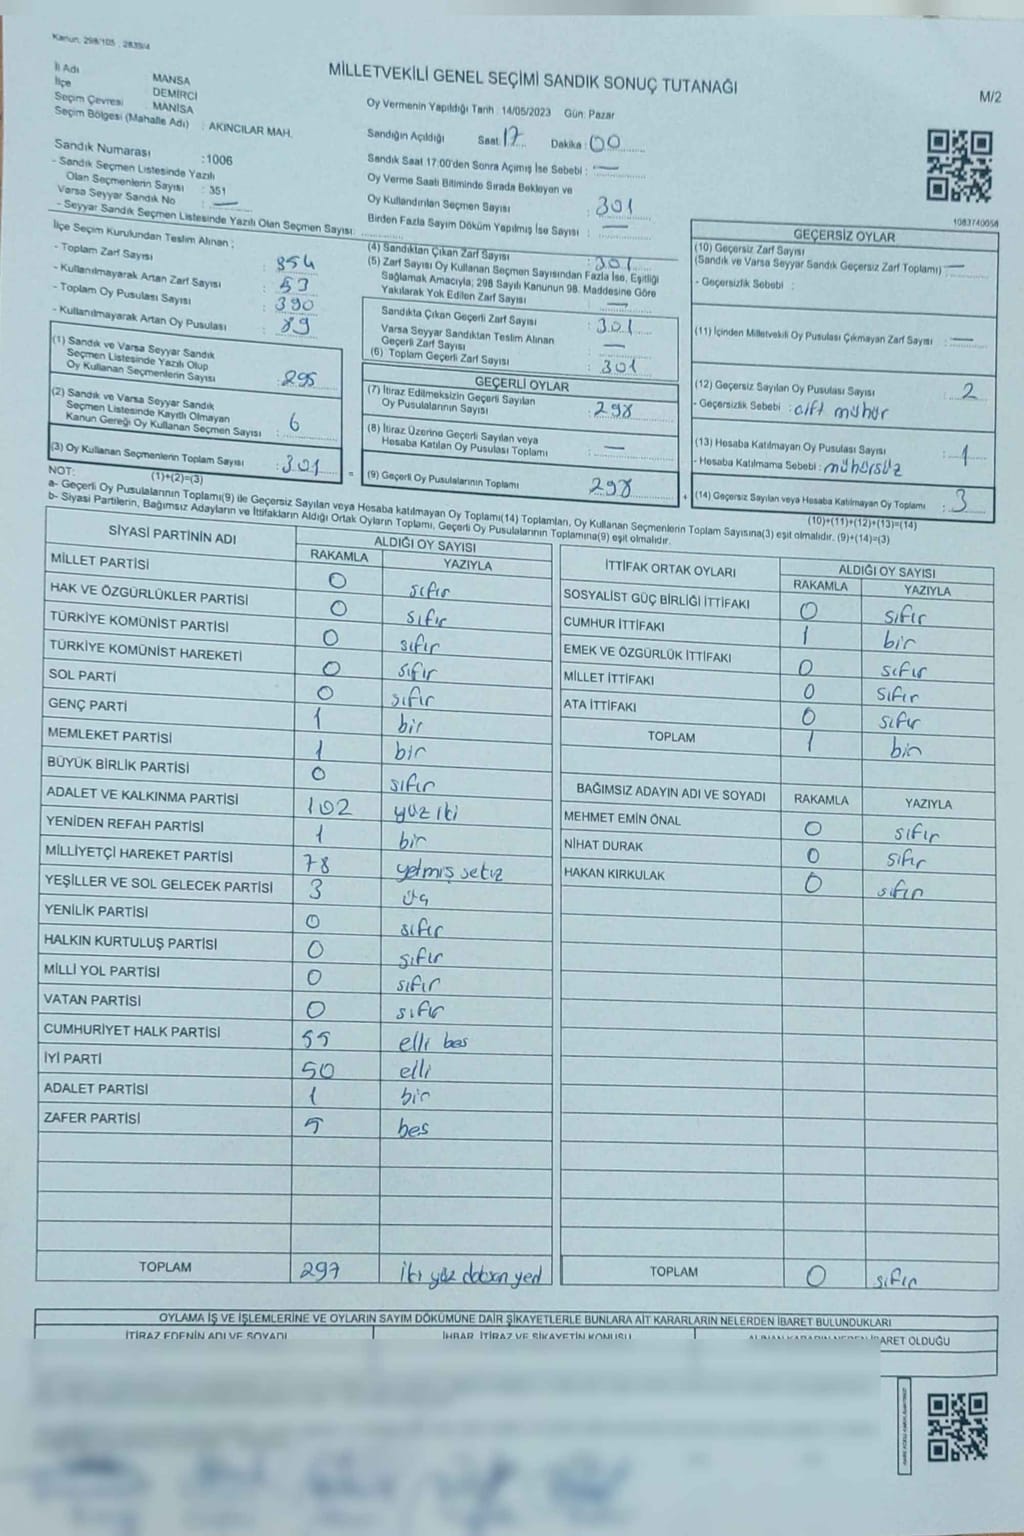 Kanun, 298/105 , 2839/4
MİLLETVEKİLİ GENEL SEÇİMİ SANDIK SONUÇ TUTANAĞI
M/2
İl Adı MANSA
İlçe DEMİRCİ
Seçim Çevresi MANİSA
Seçim Bölgesi (Mahalle Adı) : AKINCILAR MAH.
Sandık Numarası :1006
- Sandık Seçmen Listesinde Yazılı
Olan Seçmenlerin Sayısı : 351
Varsa Seyyar Sandık No : —
- Seyyar Sandık Seçmen Listesinde Yazılı Olan Seçmen Sayısı:
Oy Vermenin Yapıldığı Tarih : 14/05/2023 Gün: Pazar
Sandığın Açıldığı Saat: 17 Dakika : 00
Sandık Saat 17:00'den Sonra Açımış İse Sebebi : —
Oy Verme Saati Bitiminde Sırada Bekleyen ve
Oy Kullandırılan Seçmen Sayısı : 301
Birden Fazla Sayım Döküm Yapılmış İse Sayısı : —
1083740058
İlçe Seçim Kurulundan Teslim Alınan ;
- Toplam Zarf Sayısı : 354
- Kullanılmayarak Artan Zarf Sayısı : 53
- Toplam Oy Pusulası Sayısı : 390
- Kullanılmayarak Artan Oy Pusulası : 89
(1) Sandık ve Varsa Seyyar Sandık
Seçmen Listesinde Yazılı Olup
Oy Kullanan Seçmenlerin Sayısı : 295
(2) Sandık ve Varsa Seyyar Sandık
Seçmen Listesinde Kayıtlı Olmayan
Kanun Gereği Oy Kullanan Seçmen Sayısı : 6
(3) Oy Kullanan Seçmenlerin Toplam Sayısı : 301
(1)+(2)=(3)
(4) Sandıktan Çıkan Zarf Sayısı : 301
(5) Zarf Sayısı Oy Kullanan Seçmen Sayısından Fazla İse, Eşitliği
Sağlamak Amacıyla; 298 Sayılı Kanunun 98. Maddesine Göre
Yakılarak Yok Edilen Zarf Sayısı : —
Sandıkta Çıkan Geçerli Zarf Sayısı : 301
Varsa Seyyar Sandıktan Teslim Alınan
Geçerli Zarf Sayısı : —
(6) Toplam Geçerli Zarf Sayısı : 301
GEÇERLİ OYLAR
(7) İtiraz Edilmeksizin Geçerli Sayılan
Oy Pusulalarının Sayısı : 298
(8) İtiraz Üzerine Geçerli Sayılan veya
Hesaba Katılan Oy Pusulası Toplamı : —
= (9) Geçerli Oy Pusulalarının Toplamı : 298
GEÇERSİZ OYLAR
(10) Geçersiz Zarf Sayısı
(Sandık ve Varsa Seyyar Sandık Geçersiz Zarf Toplamı) : —
- Geçersizlik Sebebi :
(11) İçinden Milletvekili Oy Pusulası Çıkmayan Zarf Sayısı : —
(12) Geçersiz Sayılan Oy Pusulası Sayısı : 2
- Geçersizlik Sebebi : çift mühür
(13) Hesaba Katılmayan Oy Pusulası Sayısı : 1
- Hesaba Katılmama Sebebi : mühürsüz
+ (14) Geçersiz Sayılan veya Hesaba Katılmayan Oy Toplamı : 3
(10)+(11)+(12)+(13)=(14)
NOT:
a- Geçerli Oy Pusulalarının Toplamı(9) ile Geçersiz Sayılan veya Hesaba katılmayan Oy Toplamı(14) Toplamları, Oy Kullanan Seçmenlerin Toplam Sayısına(3) eşit olmalıdır. (9)+(14)=(3)
b- Siyasi Partilerin, Bağımsız Adayların ve İttifakların Aldığı Ortak Oyların Toplamı, Geçerli Oy Pusulalarının Toplamına(9) eşit olmalıdır.
SİYASİ PARTİNİN ADI ALDIĞI OY SAYISI
RAKAMLA YAZIYLA
MİLLET PARTİSİ 0 sıfır
HAK VE ÖZGÜRLÜKLER PARTİSİ 0 sıfır
TÜRKİYE KOMÜNİST PARTİSİ 0 sıfır
TÜRKİYE KOMÜNİST HAREKETİ 0 sıfır
SOL PARTİ 0 sıfır
GENÇ PARTİ 1 bir
MEMLEKET PARTİSİ 1 bir
BÜYÜK BİRLİK PARTİSİ 0 sıfır
ADALET VE KALKINMA PARTİSİ 102 yüz iki
YENİDEN REFAH PARTİSİ 1 bir
MİLLİYETÇİ HAREKET PARTİSİ 78 yetmiş sekiz
YEŞİLLER VE SOL GELECEK PARTİSİ 3 üç
YENİLİK PARTİSİ 0 sıfır
HALKIN KURTULUŞ PARTİSİ 0 sıfır
MİLLİ YOL PARTİSİ 0 sıfır
VATAN PARTİSİ 0 sıfır
CUMHURİYET HALK PARTİSİ 55 elli bes
İYİ PARTİ 50 elli
ADALET PARTİSİ 1 bir
ZAFER PARTİSİ 5 bes
TOPLAM 297 iki yüz doksan yedi
İTTİFAK ORTAK OYLARI ALDIĞI OY SAYISI
RAKAMLA YAZIYLA
SOSYALİST GÜÇ BİRLİĞİ İTTİFAKI 0 sıfır
CUMHUR İTTİFAKI 1 bir
EMEK VE ÖZGÜRLÜK İTTİFAKI 0 sıfır
MİLLET İTTİFAKI 0 sıfır
ATA İTTİFAKI 0 sıfır
TOPLAM 1 bir
BAĞIMSIZ ADAYIN ADI VE SOYADI RAKAMLA YAZIYLA
MEHMET EMİN ÖNAL 0 sıfır
NİHAT DURAK 0 sıfır
HAKAN KIRKULAK 0 sıfır
TOPLAM 0 sıfır
OYLAMA İŞ VE İŞLEMLERİNE VE OYLARIN SAYIM DÖKÜMÜNE DAİR ŞİKAYETLERLE BUNLARA AİT KARARLARIN NELERDEN İBARET BULUNDUKLARI
İTİRAZ EDENİN ADI VE SOYADI İHBAR, İTİRAZ VE ŞİKAYETİN KONUSU ALINAN KARARIN NEDEN İBARET OLDUĞU